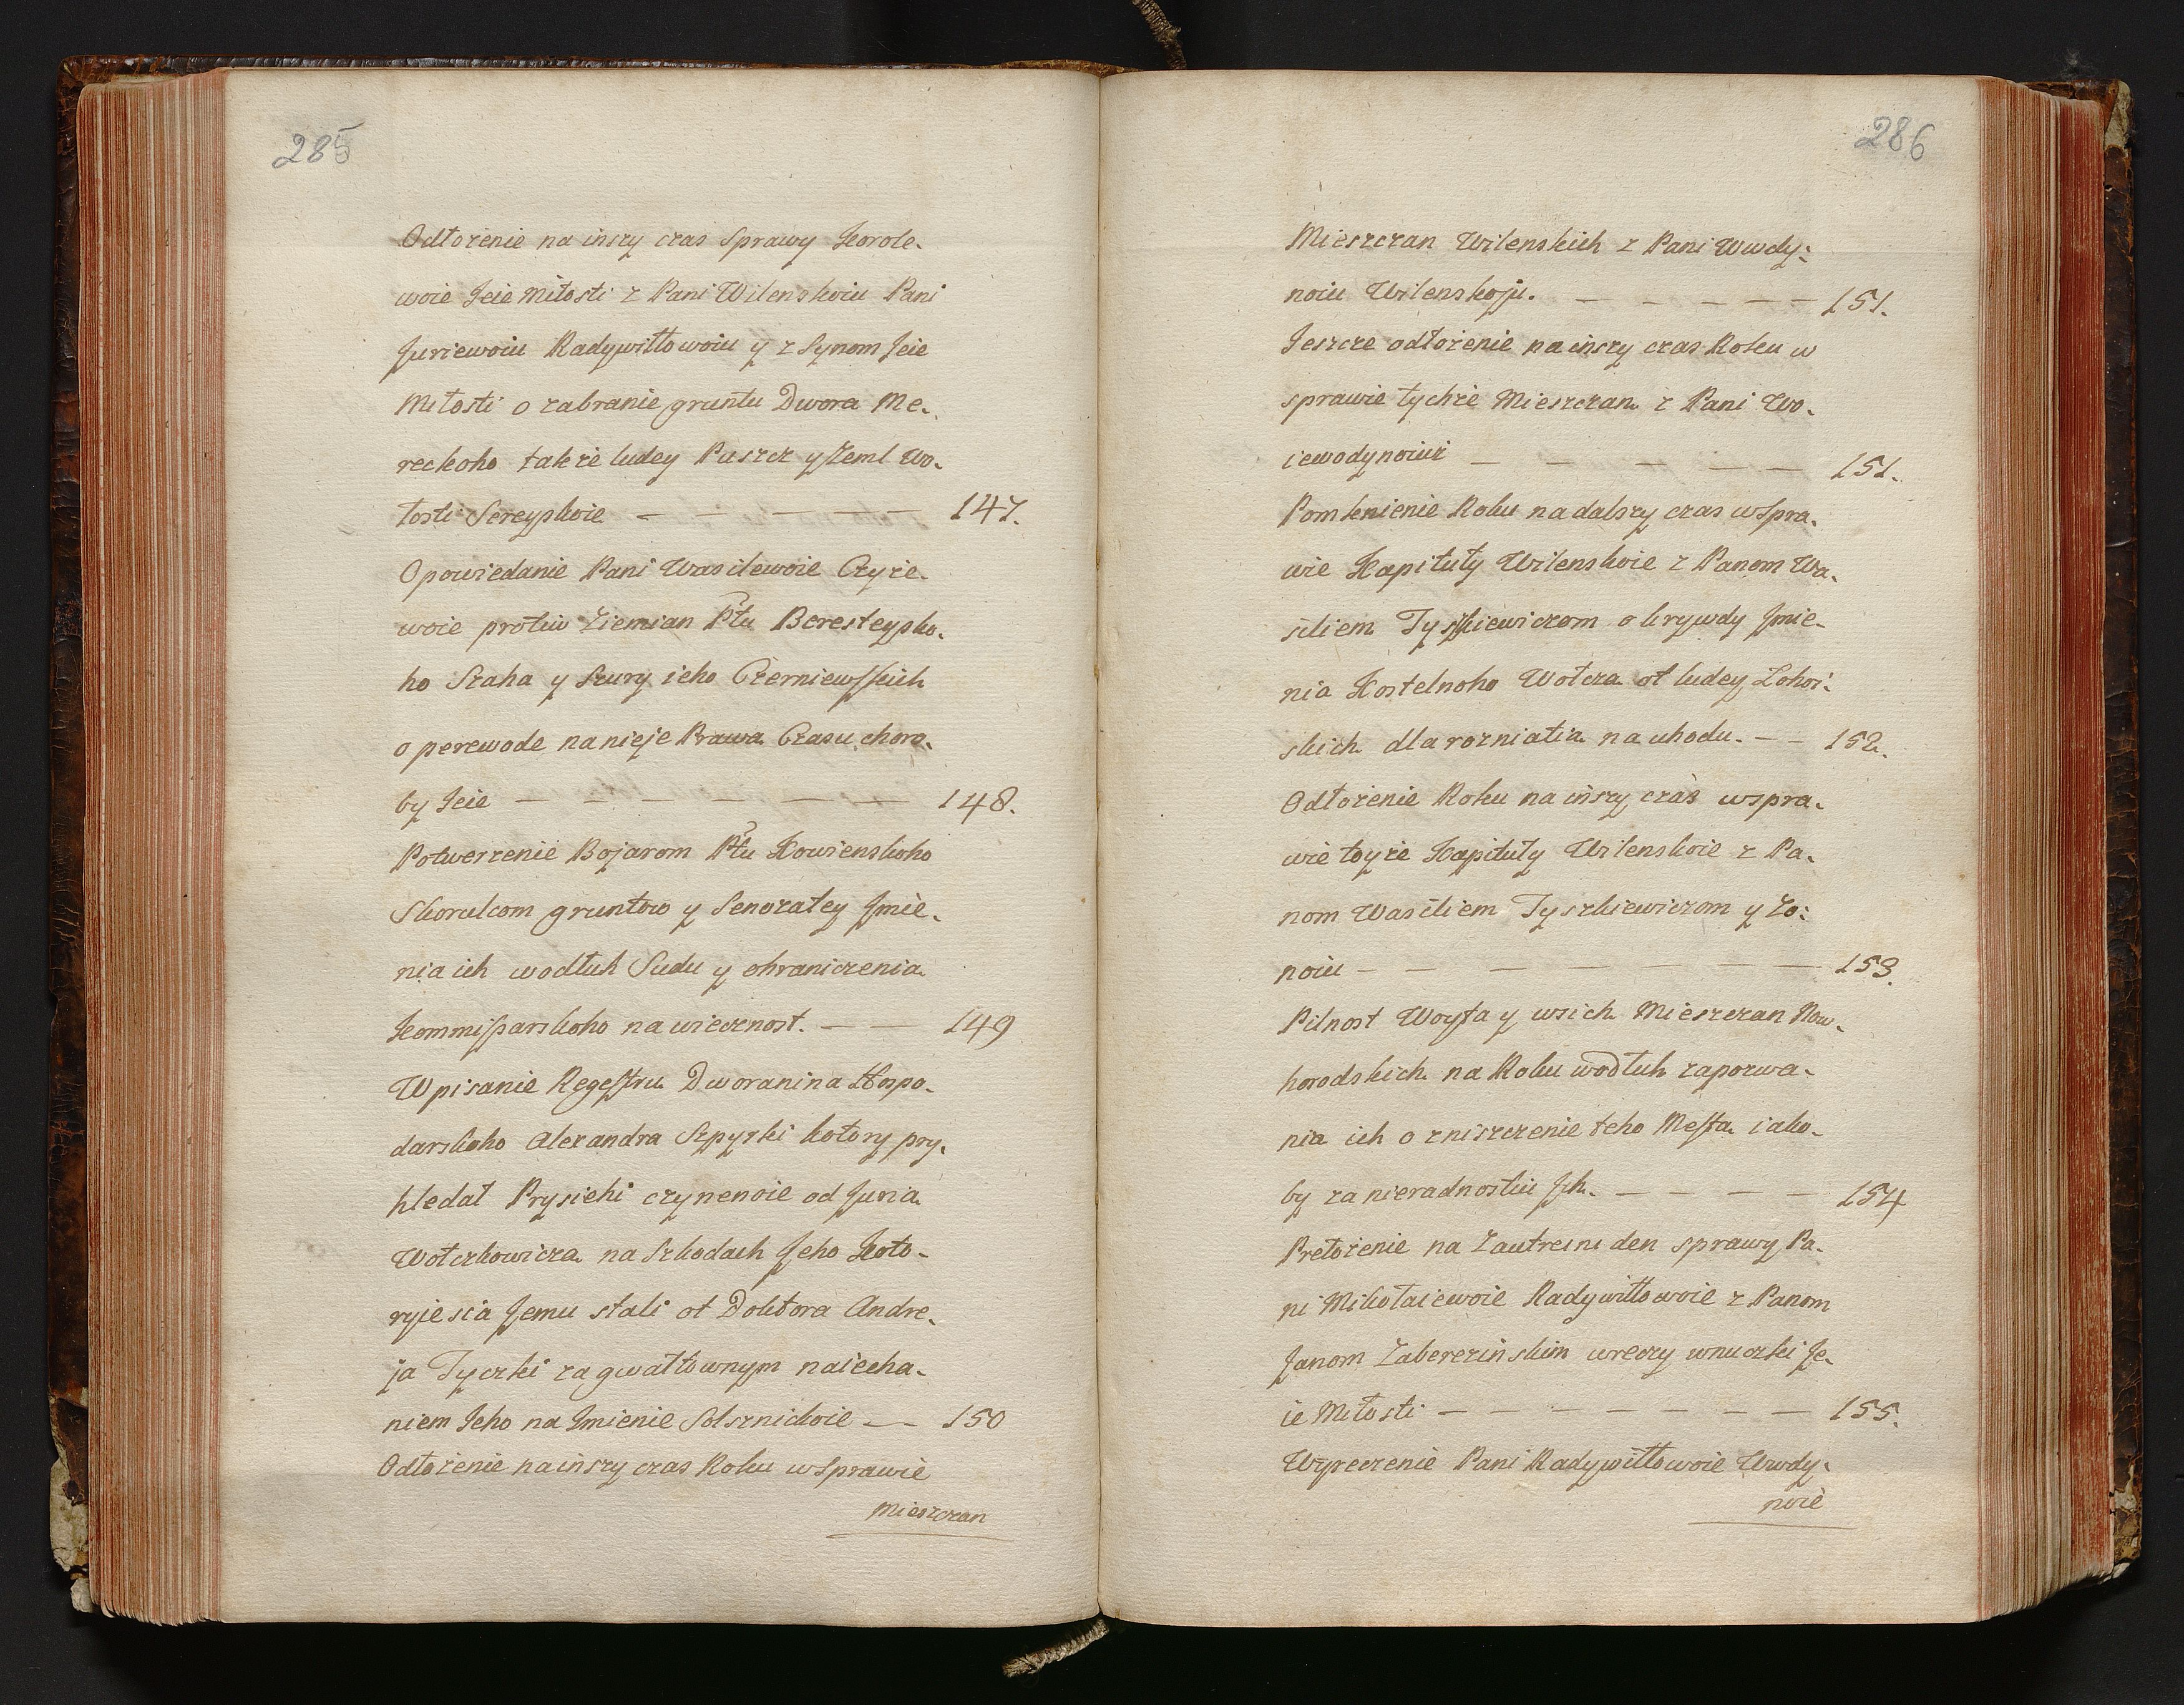 285
Odłożenie na inszy czas Sprawy Korole-
woie Jeie Miłosti z Pani Wilenskoiu Pani
Juriewoiu Radywiłłowoiu y z Synom Jeie
Miłosti o zabranie gruntu Dwora Me-
reckoho także ludey Puszcz y Zeml Wo-
łosti Sereyskoie — — — — — 147.
Opowiedanie Pani Wasilewoie Czyże-
woie protiw Ziemian Ptu Beresteysko-
ho Staha y Szury ieho Czerniewskich
o perewode na nieje Prawa Czasu choro-
by Jeie — — — — — — 148.
Potwerzenie Bojarom Ptu Kowienskoho
Skorulcom gruntow y Senozatey Jmie-
nia ich wodłuh Sudu y ohraniczenia
Kommissarskoho na wiecznost. — — 149
Wpisanie Regestru Dworanina Hospo-
darskoho Alexandra Szpyrki kotory pry-
hledał Prysiehi czynenoie od Juria
Wołczkowicza na Szkodach Jeho Koto-
ryie sia Jemu stali ot Doktora Andre-
ja Tyczki za gwałtownym naiecha-
niem Jeho na Jmienie Solsznickoie — — 150
Odłożenie na inszy czas Roku w Sprawie
Mieszczan
286
Mieszczan Wilenskich z Pani Wwdy-
noiu Wilenskoju. — — — — — 151.
Jeszcze odłożenie na inszy czas Roku w
sprawie tychże Mieszczan z Pani Wo-
iewodynoiui — — — — — 151.
Pomknienie Roku na dalszy czas w Spra-
wie Kapituły Wilenskoie z Panom Wa-
siliem Tyszkiewiczom o krywdy Jmie-
nia Kostelnoho Wołcza ot ludey Lohoi-
skich dla rozniatia na uhodu. — — 152.
Odłożenie Roku na inszy czas w spra-
wie toyże Kapituły Wilenskoie z Pa-
nom Wasiliem Tyszkiewiczom y Zo-
noiu — — — — — — — 153.
Pilnost Woyta y wsich Mieszczan Now-
horodskich na Roku wodłuh zapozwa-
nia ich o zniszczenie teho Mesta iako-
by za nieradnostiu Jch. — — — — 154
Prełożenie na Zautreini den sprawy Pa-
ni Mikołaiewoie Radywiłłowoie z Panom
Janom Zaberezinskim w reczy wnuczki Je-
ie Miłosti — — — — — — — 155.
Wyreczenie Pani Radywiłłowoie Wwdy-
noie